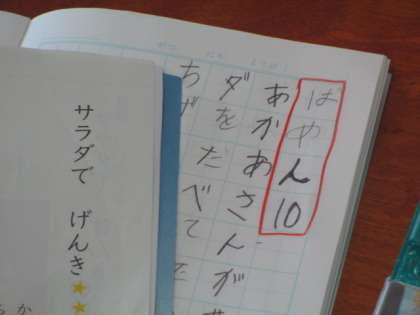 ばやん10
あかあさんが
ダをだべて
サラダで げんき★★